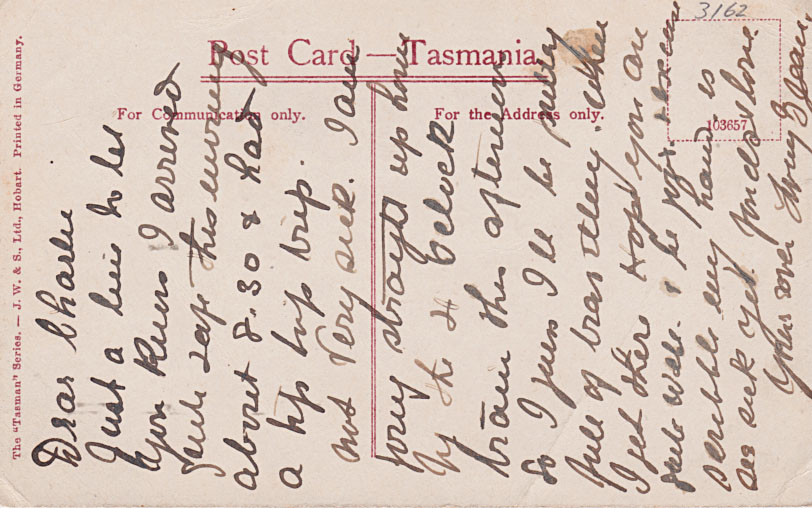 3162
Post Card — Tasmania.
For Communication only.
For the Address only.
103657
The "Tasman" Series. — J. W. & S., Ltd., Hobart. Printed in Germany.
Dear Charlie
Just a line to let
you know I arrived
safe this morning
about 8.30 & had
a trip.
not very sick. I am
going straight up home
by the 4 Oclock
train this afternoon
so I guess I'll be
full of when
I get there Hope you are
well
scribble my hand is
sea sick yet fondest love.
Yours ever